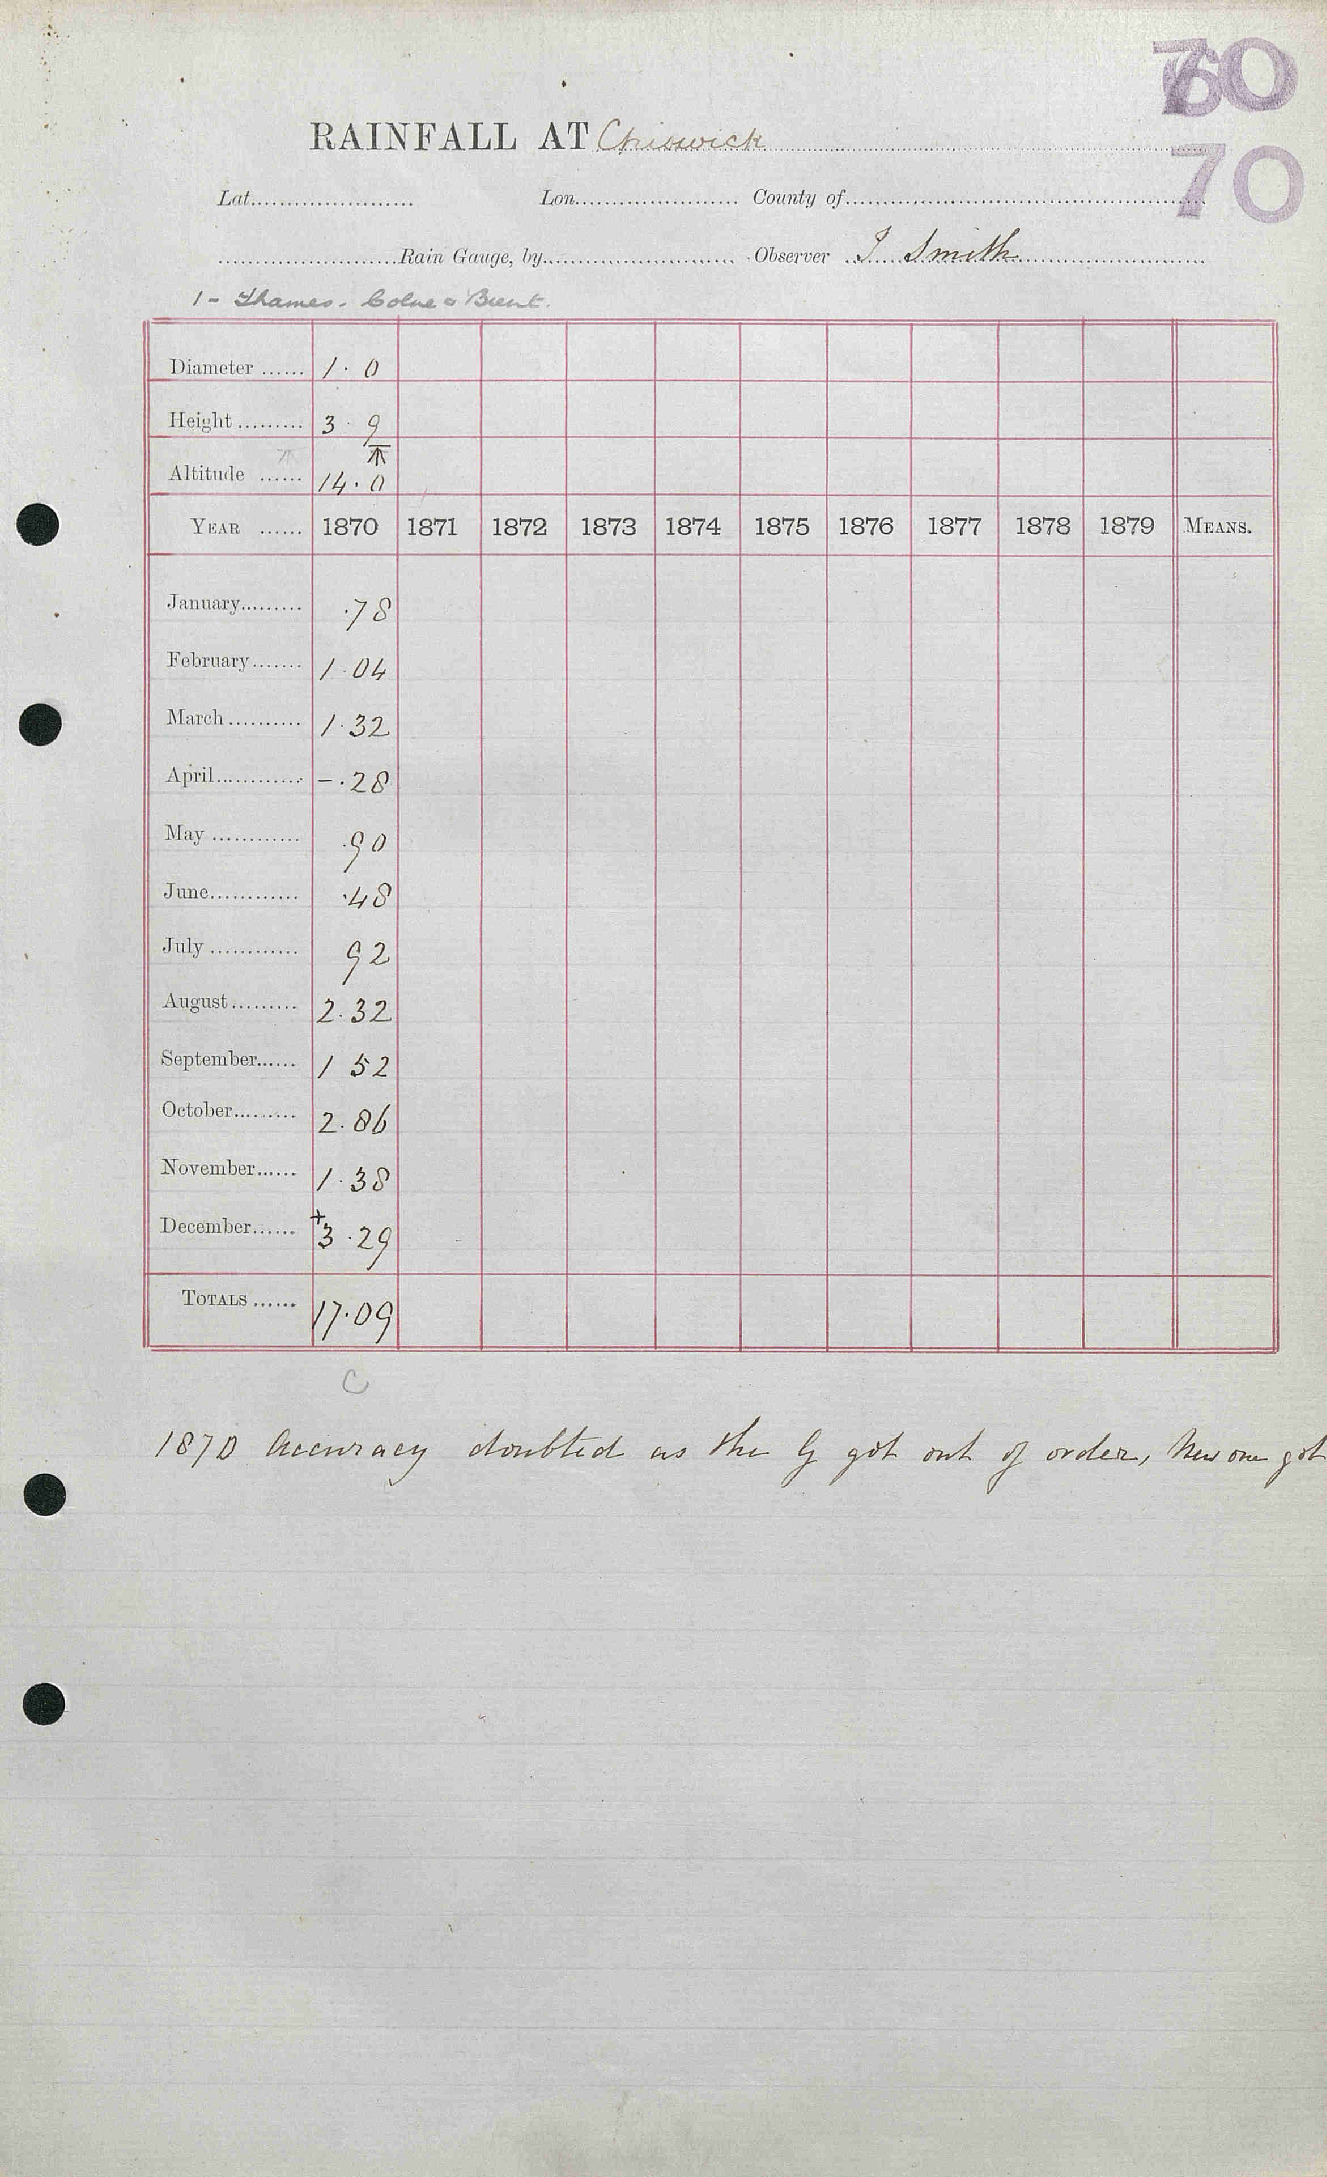 70
RAINFALL AT Chiswick
70
Lat...................... Lon...................... County of..............................
......................Rain Gauge, by...................... Observer J Smith
1 - Thames. Colne & Brent.
Diameter ...... 1.0
Height ......... 3 9
Altitude ...... 14.0
YEAR ...... 1870 1871 1872 1873 1874 1875 1876 1877 1878 1879 MEANS.
January......... .78
February....... 1.04
March .......... 1.32
April............ -.28
May ............ .90
June............ .48
July ............ 92
August......... 2.32
September...... 1 52
October......... 2.86
November...... 1.38
December...... +3.29
TOTALS ...... 17.09
C
1870 Accuracy doubted as the G got out of order, New one got